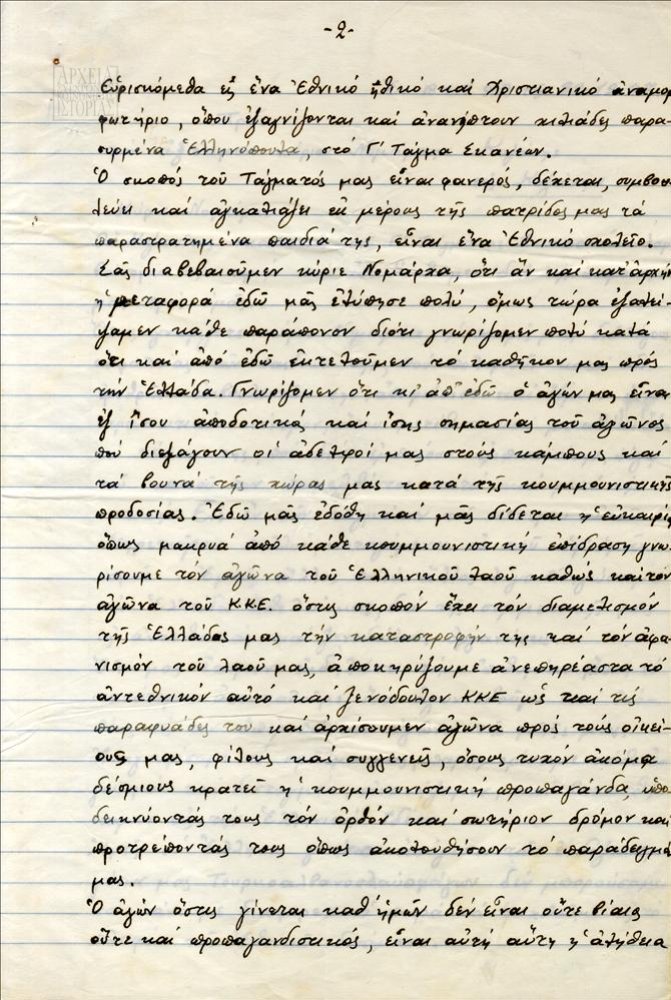 -2-
ΑΡΧΕΙΑ
ΙΣΤΟΡΙΑΣ
Εὑρισκόμεθα εἰς ἕνα Ἐθνικό ἠθικό καί Χριστιανικό ἀναμορ
φωτήριο, ὅπου ἐξαγνίζονται καί ἀνανήπτουν χιλιάδες παρα-
συρμένα Ἑλληνόπουλα, στό Γ' Τάγμα Σκαπανέων.
Ὁ σκοπός τοῦ Τάγματός μας εἶναι φανερός, δέχεται, συμβου
λεύει καί ἀγκαλιάζει ἐκ μέρους τῆς πατρίδος μας τά
παραστρατημένα παιδιά της, εἶναι ἕνα Ἐθνικό σχολεῖο.
Σᾶς διαβεβαιοῦμεν κύριε Νομάρχα, ὅτι ἄν καί κατ' ἀρχήν
ἡ μεταφορά ἐδῶ μᾶς ἐλύπησε πολύ, ὅμως τώρα ἐξαλεί-
ψαμεν κάθε παράπονον διότι γνωρίζομεν πολύ καλά
ὅτι καί ἀπό ἐδῶ ἐκτελοῦμεν τό καθῆκον μας πρός
τήν Ἑλλάδα. Γνωρίζομεν ὅτι κι' ἀπ' ἐδῶ ὁ ἀγών μας εἶναι
ἐξ ἴσου ἀποδοτικός καί ἴσης σημασίας τοῦ ἀγῶνος
πού διεξάγουν οἱ ἀδελφοί μας στούς κάμπους καί
τά βουνά τῆς χώρας μας κατά τῆς κουμμουνιστικῆς
προδοσίας. Ἐδῶ μᾶς ἐδόθη καί μᾶς δίδεται ἡ εὐκαιρία
ὅπως μακρυά ἀπό κάθε κουμμουνιστική ἐπίδραση γνω
ρίσουμε τόν ἀγῶνα τοῦ Ἑλληνικοῦ λαοῦ καθώς καί τόν
ἀγῶνα τοῦ Κ.Κ.Ε. ὅστις σκοπόν ἔχει τόν διαμελισμόν
τῆς Ἑλλάδος μας τήν καταστροφήν της καί τόν ἀφα
νισμόν τοῦ λαοῦ μας, ἀποκηρύξουμε ἀνεπηρέαστα τό
ἀντεθνικόν αὐτό καί ξενόδουλον ΚΚΕ ὡς καί τίς
παραφυάδες του καί ἀρχίσουμεν ἀγῶνα πρός τούς οἰκεί-
ους μας, φίλους καί συγγενεῖς, ὅσους τυχόν ἀκόμα
δέσμιους κρατεῖ ἡ κουμμουνιστική προπαγάνδα, ὑπο
δεικνύοντάς τους τόν ὀρθόν καί σωτήριον δρόμον καί
προτρέποντάς τους ὅπως ἀκολουθήσουν τό παράδειγμά
μας.
Ὁ ἀγών ὅστις γίνεται καθ' ἡμῶν δέν εἶναι οὔτε βίαιος
οὔτε καί προπαγανδιστικός, εἶναι αὐτή αὕτη ἡ ἀλήθεια